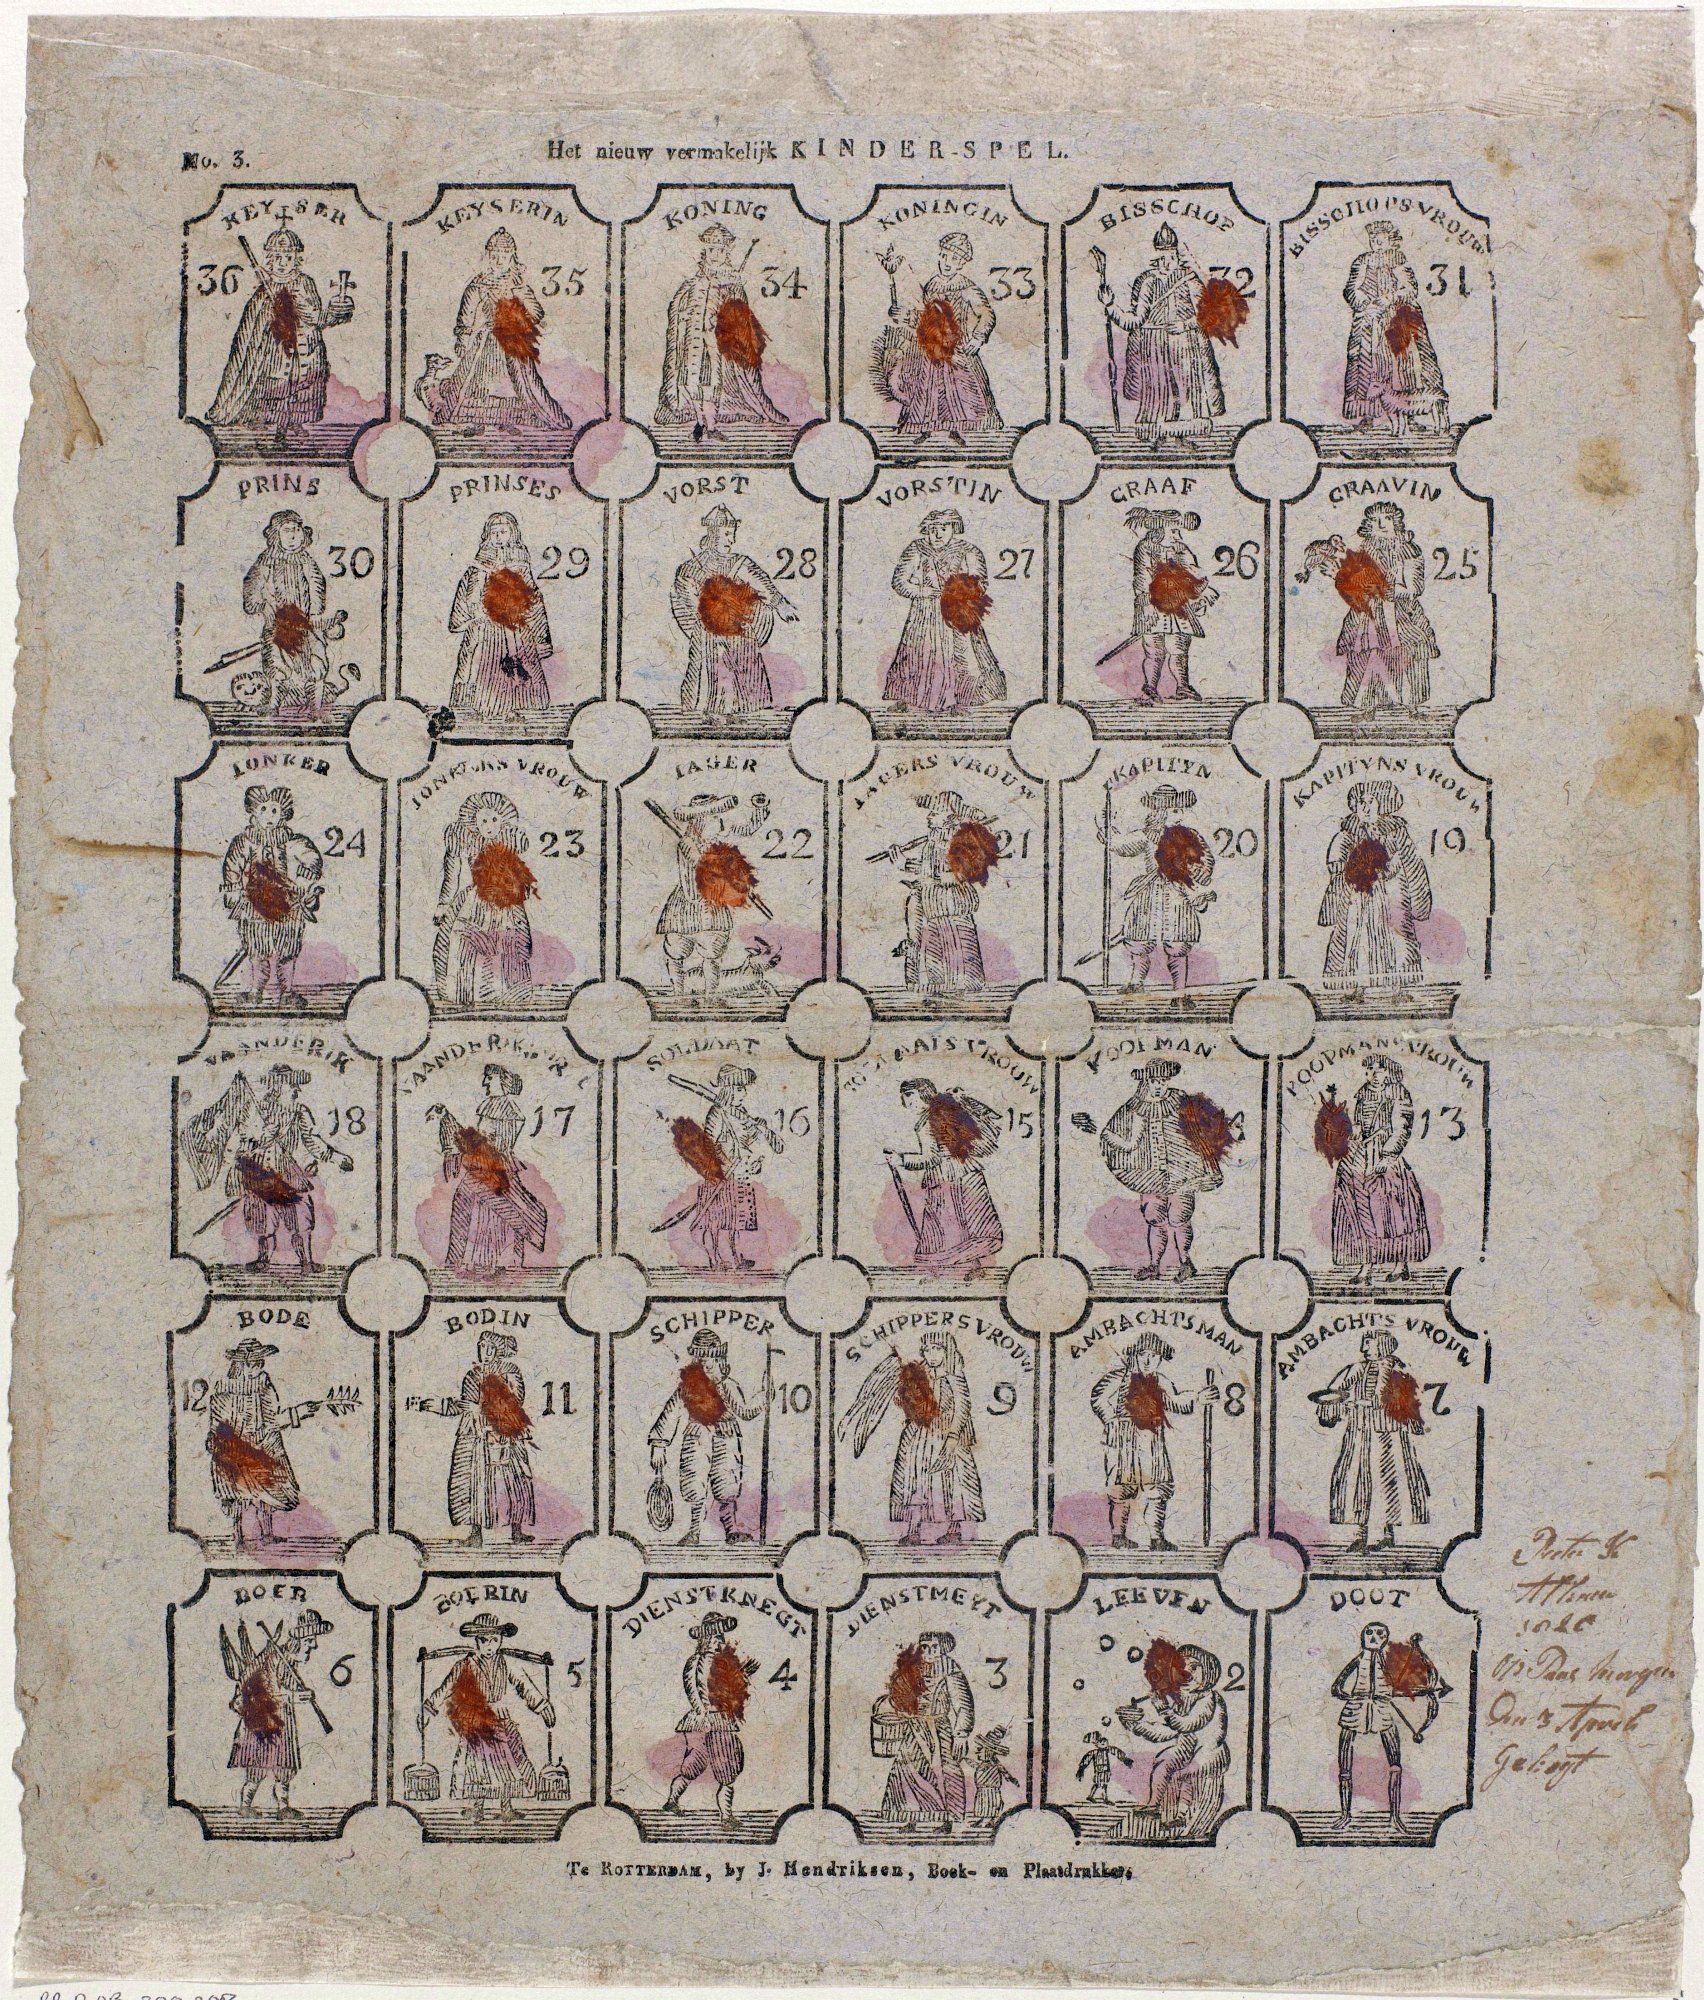 No. 3.
Het nieuw vermakelijk KINDER-SPEL.
KEYSER
36
KEYSERIN
35
KONING
34
KONINGIN
33
BISSCHOP
32
BISSCHOPSVROUW
31
PRINS
30
PRINSES
29
VORST
28
VORSTIN
27
GRAAF
26
GRAAVIN
25
IONKER
24
IONKERS VROUW
23
IAGER
22
IAGERS VROUW
21
KAPITYN
20
KAPITYNS VROUW
19
VAANDERIK
18
17
SOLDAAT
16
15
KOOPMAN
KOOPMANS VROUW
13
BODE
12
BODIN
11
SCHIPPER
10
SCHIPPERSVROUW
9
AMBACHTSMAN
8
AMBACHTS VROUW
7
BOER
6
BOERIN
5
DIENSTKNEGT
4
DIENSTMEYT
3
LEEVEN
2
DOOT
Pieter K
op Paas
Den 3 April
Te ROTTERDAM, by J. Hendriksen, Boek- en Plaatdrukker.